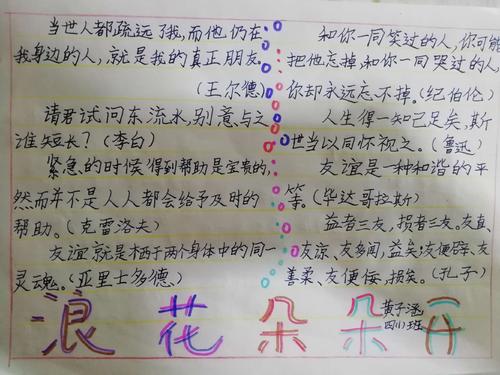 当世人都疏远了我,而他仍在
我身边的人,就是我的真正朋友。
(王尔德)
请君试问东流水,别意与之
谁短长?(李白)
紧急的时候得到帮助是宝贵的,
然而并不是人人都会给予及时的
帮助。(克雷洛夫)
友谊就是栖于两个身体中的同一
灵魂。(亚里士多德)
和你一同笑过的人,你可能
把他忘掉,和你一同哭过的人,
你却永远忘不掉。(纪伯伦)
人生得一知己足矣,斯
世当以同怀视之。(鲁迅)
友谊是一种和谐的平
等。(毕达哥拉斯)
益者三友,损者三友。友直、
友谅、友多闻,益矣;友便辟、友
善柔、友便佞,损矣。(孔子)
浪花朵朵开
黄子涵
四(1)班